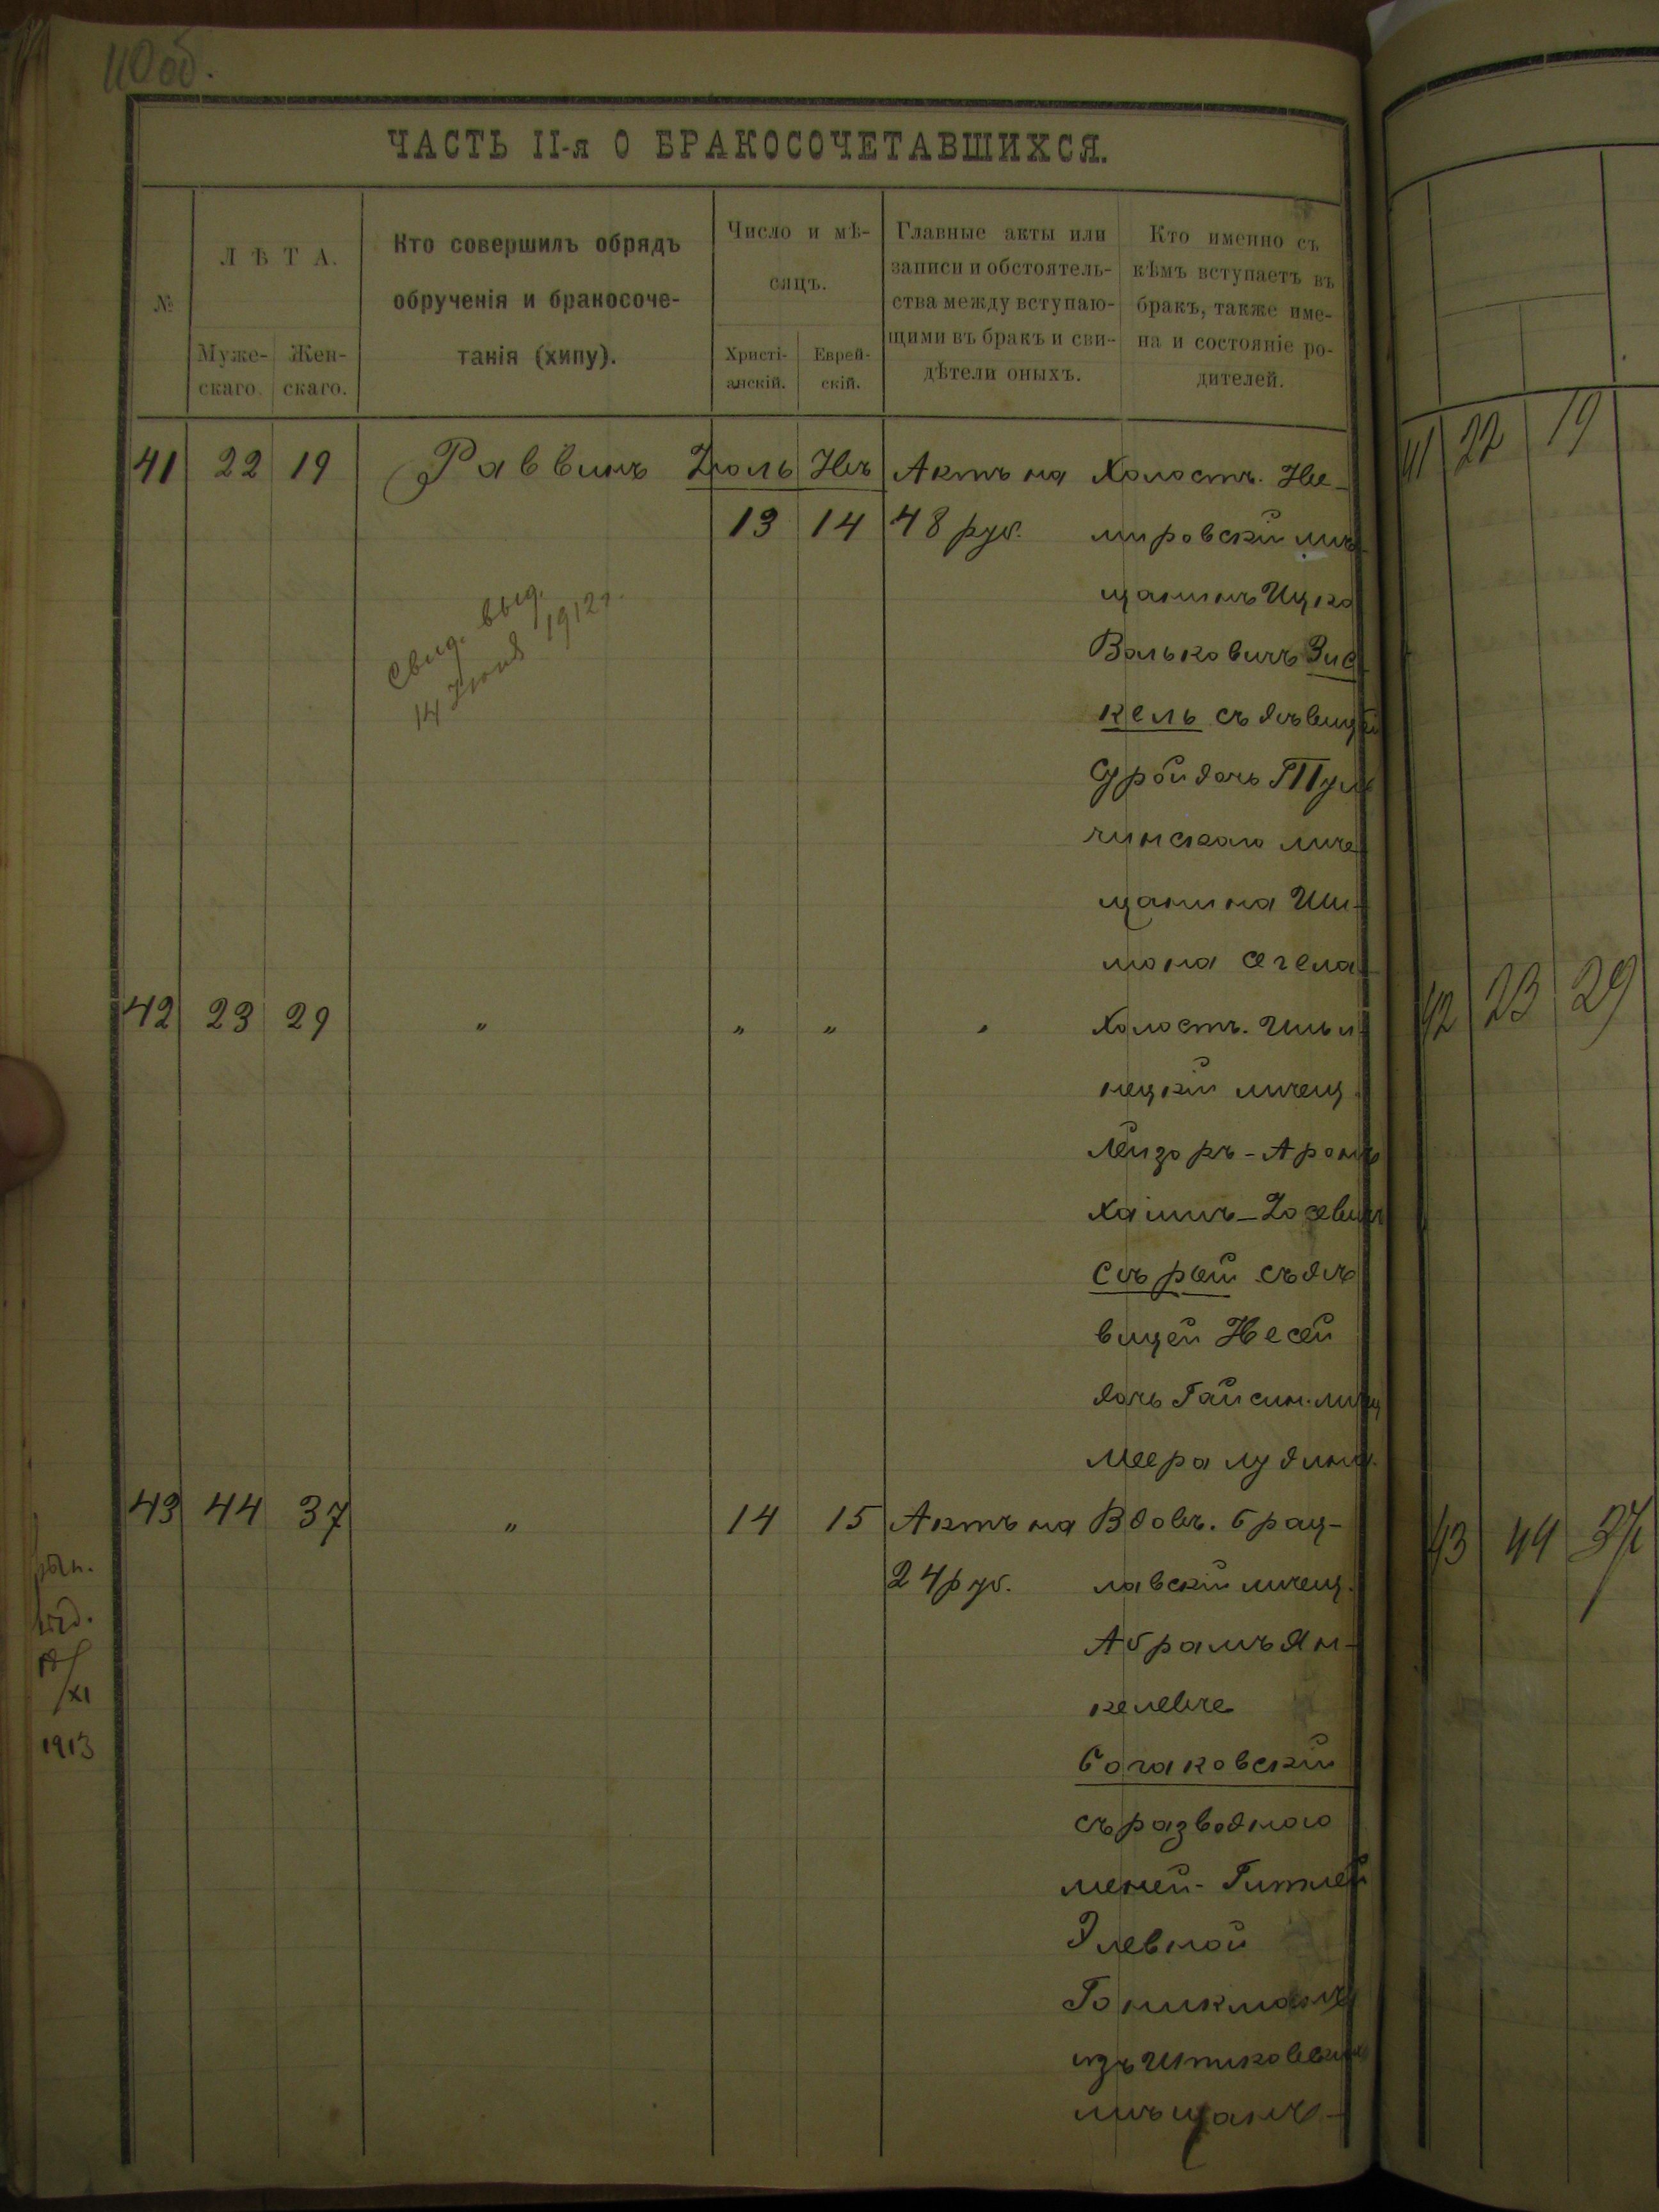 110 об.
ЧАСТЬ II-я О БРАКОСОЧЕТАВШИХСЯ.
№
ЛѢТА.
Муже-
скаго.
Жен-
скаго.
Кто совершилъ обрядъ
обрученія и бракосоче-
танія (хипу).
Число и мѣ-
сяцъ.
Христі-
анскій.
Еврей-
скій.
Главные акты или
записи и обстоятель-
ства между вступаю-
щими въ бракъ и сви-
дѣтели оныхъ.
Кто именно съ
кѣмъ вступаетъ въ
бракъ, также име-
на и состояніе ро-
дителей.
41 22 19 Раввинъ Іюль Актъ на Холостъ. Не-
13 14 48 руб. мировскій мѣ-
щанинъ Ицко
Вольковичъ Зис-
кель съ дѣвицей
Сурой дочь Туль
чинскаго мѣ-
щанина Ши-
мона
Свид. выд.
14 Іюня 1912 г.
42 23 29 " " " " Холостъ. Ильи-
нецкій мѣщ.
Лейзоръ-Аронъ
Хаимъ-Іосевичъ
Сѣрый съ дѣ
вицей Несей
дочь Гайсин. мѣщ
Меера Лудина.
43 44 37 " 14 15 Актъ на Вдовъ. Брац-
24 руб. лавскій мѣщ.
Абрамъ Ян-
келевъ
Богаковскій
съ разводного
женей- Гитлей
Элевной
изъ
мѣщанъ-
выд.
XI
1913
41 22 19
42 23 29
43 44 37